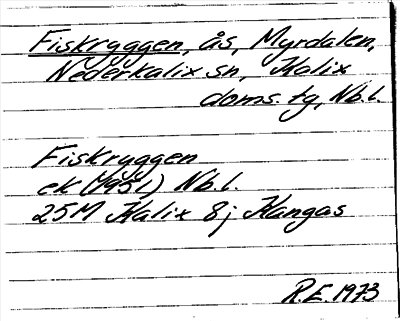 Fiskryggen, ås, Myrdalen,
Nederkalix sn, Kalix
doms. tg, Nb.l.
Fiskryggen
ek (1951) Nb.l.
25M Kalix 8j Kangas
R.E. 1973